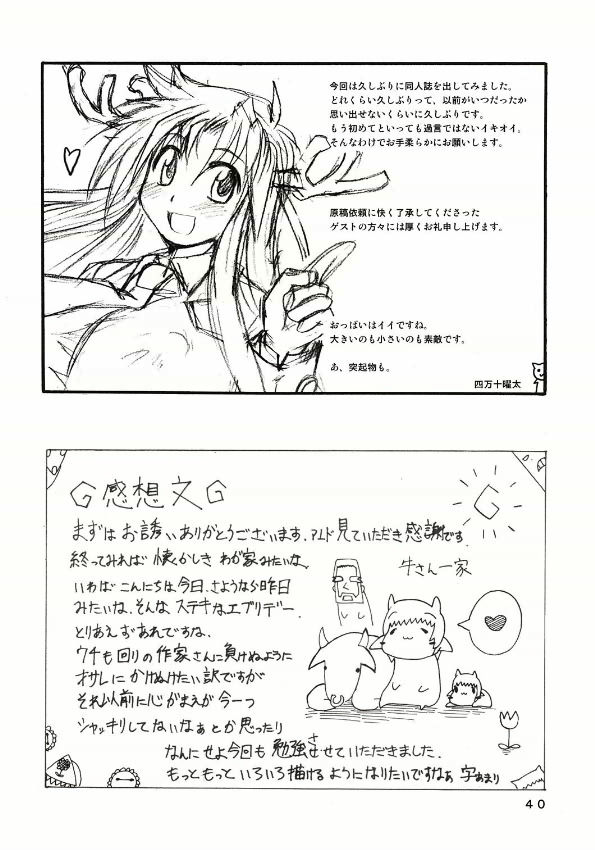 今回は久しぶりに同人誌を出してみました。
どれくらい久しぶりって、以前がいつだったか
思い出せないくらいに久しぶりです。
もう初めてといっても過言ではないイキオイ。
そんなわけでお手柔らかにお願いします。
原稿依頼に快く了承してくださった
ゲストの方々には厚くお礼申し上げます。
おっぱいはイイですね。
大きいのも小さいのも素敵です。
あ、突起物も。
四万十曜太
G感想文G
まずはお誘いありがとうございます. 見ていただき感謝です
終ってみれば 懐かしき わが家みたいな,
G
牛さん一家
いわば こんにちは今日、さようなら昨日
みたいな、そんな ステキなエブリデー.
とりあえずあれですね、
ウチも回りの作家さんに負けぬように
オサレに かけぬけたい訳ですが
それ以前に心がまえが今一つ
シャッキリしてないなぁとか思ったり
なんにせよ今回も 勉強させていただきました.
もっともっと いろいろ描ける ようになりたいですなぁ 字あまり
40